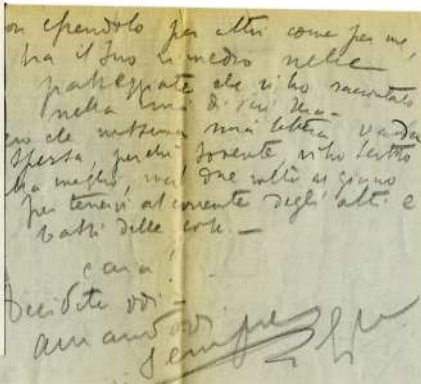 per altri come per me,
ha il suo rimedio nelle
passeggiate che vi ho raccontato
nella mia di ieri
che nessuna mia lettera vada
spersa, perché sovente vi ho scritto
due volte al giorno
per tenervi al corrente degli alti e
bassi delle cose. —
cara!
Decidete voi —
amandovi
sempre